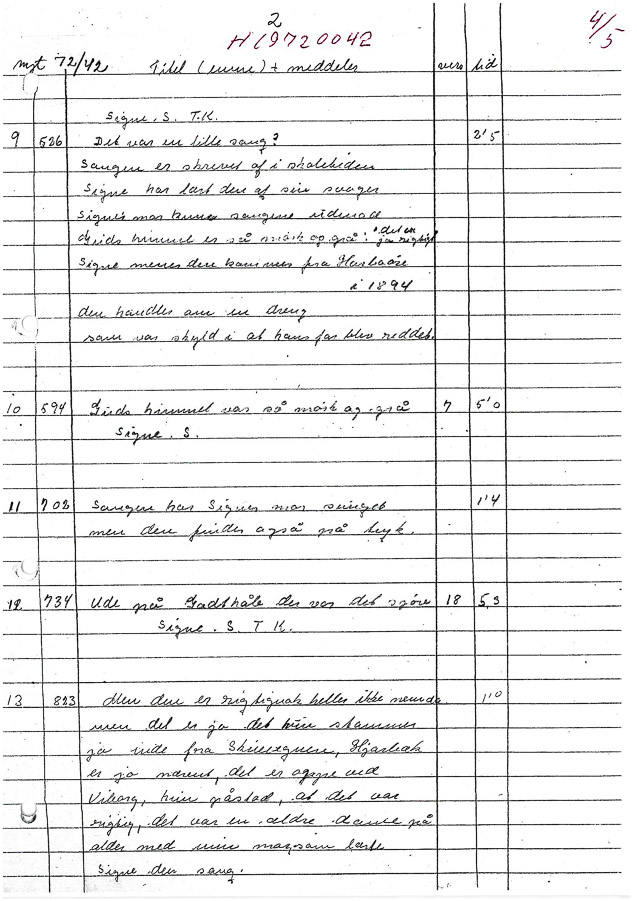 2
H19720042
4/5
mgt 72/42 Titel (emne) + meddeler vers tid
Signe. S. T.K.
9 526 Det var en lille sang? 2'5
Sangen er skrevet af i skoletiden
Signe har lært den af sin
Signes mor kunne sangene udenad
Guds himmel er så mørk og grå! "det er ja rigtigt
Signe menes den kommer fra Harboøre
i 1894
den handler om en dreng
som var skyld i at hans far blev reddet.
10 594 Guds himmel var så mørk og grå 7 5'0
Signe. S.
11 702 Sangen har Signes mor sunget 1'4
men den findes også på tryk.
12 734 Ude på der var det sjove 18 5,3
Signe. S. T K.
13 823 Men den er rigtignok heller ikke 1'0
men det er ja det hun stammer
ja inde fra Hjarbæk
er ja nærent, det er ved
Viborg, hun påstod, at det var
rigtig, det var en ældre dame på
alder med min mor, som lærte
Signe den sang.